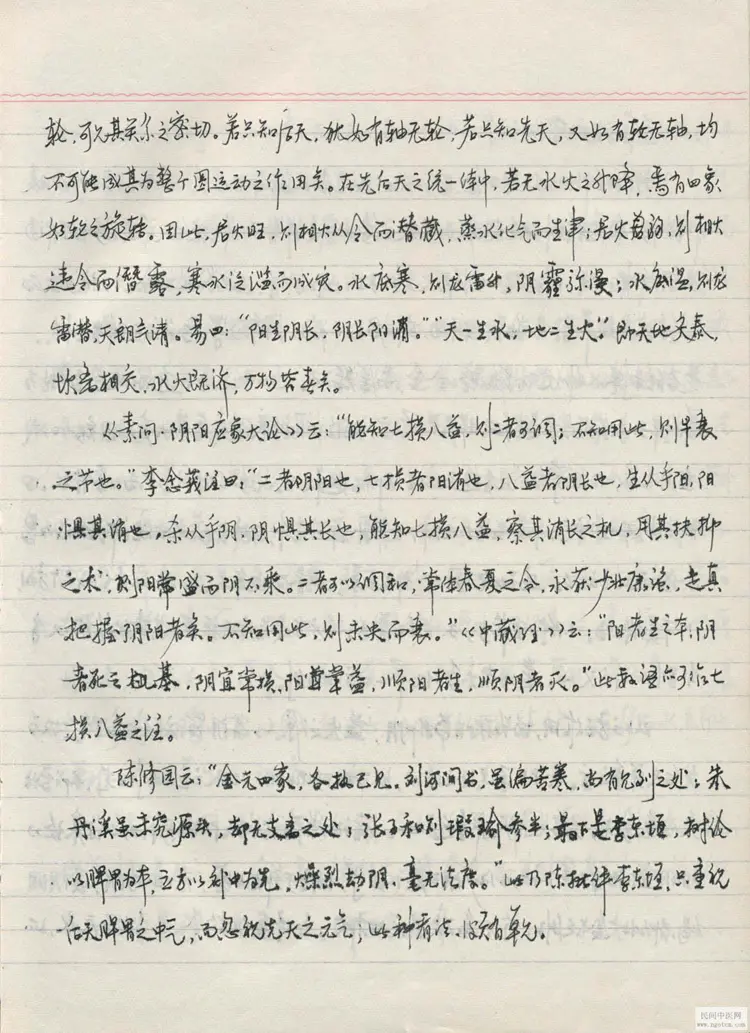 轮,可见其关系之密切。若只知后天,犹如有轴无轮,若只知先天,又如有轮无轴,均
不可能成其为整个圆运动之作用矣。在先后天之统一体中,若无水火之升降,焉有四象
如轮之旋转。因此,君火旺,则相火从令而潜藏,蒸水化气而生津;君火若弱,则相火
违令而僭露,寒水泛滥而成灾。水底寒,则龙雷升,阴霾弥漫;水底温,则龙
雷潜,天朗气清。易曰:“阳生阴长,阴长阳消。”“天一生水,地二生火”。即天地交泰,
坎离相交,水火既济,万物皆春矣。
《素问·阴阳应象大论》云:“能知七损八益,则二者可调;不知用此,则早衰
之节也。”李念莪注曰:“二者阴阳也,七损者阳消也,八益者阴长也,生从乎阳,阳
惧其消也,杀从乎阴,阴惧其长也,能知七损八益,察其消长之机,用其扶抑
之术,则阳常盛而阴不乘。二者可以调和,常体春夏之令,永获少壮康强,是真
把握阴阳者矣。不知用此,则未央而衰。”《中藏经》云:“阳者生之本,阴
者死之基,阴宜常损,阳宜常益,顺阳者生,顺阴者灭。”此数语亦可作七
损八益之注。
陈修园云:“金元四家,各执己见。刘河间书,虽偏苦寒,尚有见到之处;朱
丹溪虽未究源头,却无支离之处;张子和则瑕瑜参半;最下是李东垣,树论
以脾胃为本,立方以补中为先,燥烈劫阴,毫无法度。”此乃陈批评李东垣,只重视
后天脾胃之中气,而忽视先天之元气,此种看法,颇有单见。
民间中医网
www.ngotcm.com